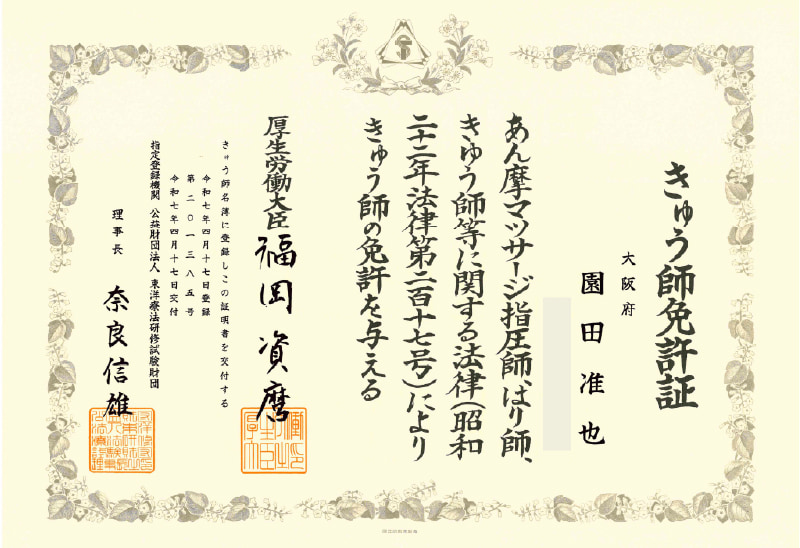 きゅう師免許証
大阪府
園田准也
あん摩マッサージ指圧師、はり師、
きゆう師等に関する法律(昭和
二十二年法律第二百十七号)により
きゅう師の免許を与える
厚生労働大臣 福岡資麿
きゅう師名簿に登録しこの証明書を交付する
令和七年四月十七日登録
第二〇一三八五号
令和七年四月十七日交付
指定登録機関 公益財団法人 東洋療法研修試験財団
理事長 奈良信雄